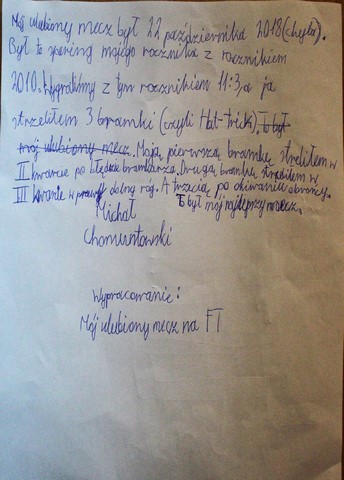 Mój ulubiony mecz był 22 października 2018 (chyba).
Był to sparing mojego rocznika z rocznikiem
2010. Wygraliśmy z tym rocznikiem 11:3, a ja
strzeliłem 3 bramki (czyli Hat-trick), i był
mój ulubiony mecz. Moją pierwszą bramkę streliłem w
II kwarcie po błędzie bramkarza. Drugą bramkę streliłem w
III kwarcie w prawy dolny róg. A trzecią po okiwaniu obrońcy.
Michał To był mój najlepszy mecz.
Chomustowski
Wypracowanie:
Mój ulubiony mecz na FT